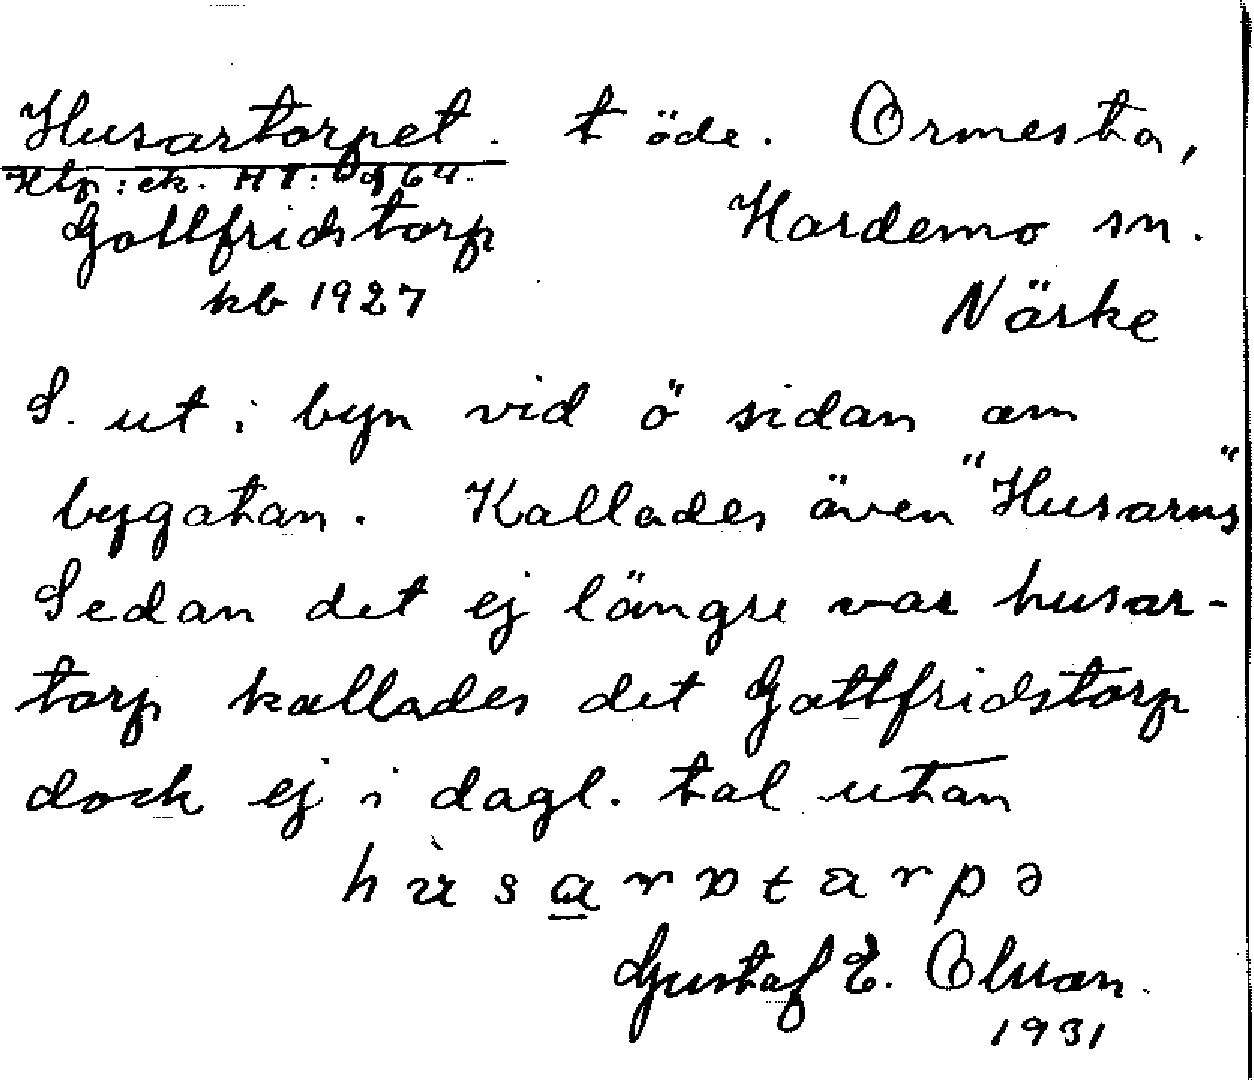 Husartorpet. t öde. Ormesta,
Htp: ek. H 8: 6 g 64.
Gottfridstorp Hardemo sn.
kb 1927 Närke
S. ut i byn vid ö sidan om
bygatan. Kallades även "Husarns"
Sedan det ej längre var husar-
torp kallades det Gottfridstorp
dock ej i dagl. tal utan
Gustaf E. Olsson
1931